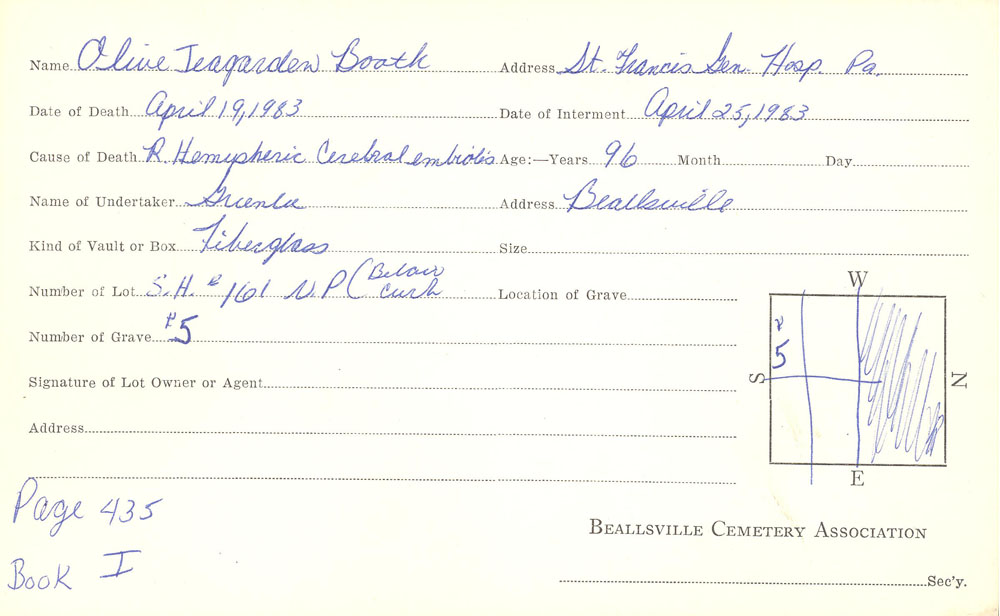 Name Olive Teagarden Booth Address St. Francis Gen. Hosp. Pa.
Date of Death April 19, 1983 Date of Interment April 25, 1983
Cause of Death R. Hemispheric Cerebral embiolis Age:—Years 96 Month Day
Name of Undertaker Greenlee Address Beallsville
Kind of Vault or Box Fiberglass Size
Number of Lot S.H. # 161 N.P. (Below curb Location of Grave
Number of Grave #5
Signature of Lot Owner or Agent
Address
W
S # 5 N
E
Page 435
Book I
BEALLSVILLE CEMETERY ASSOCIATION
Sec'y.